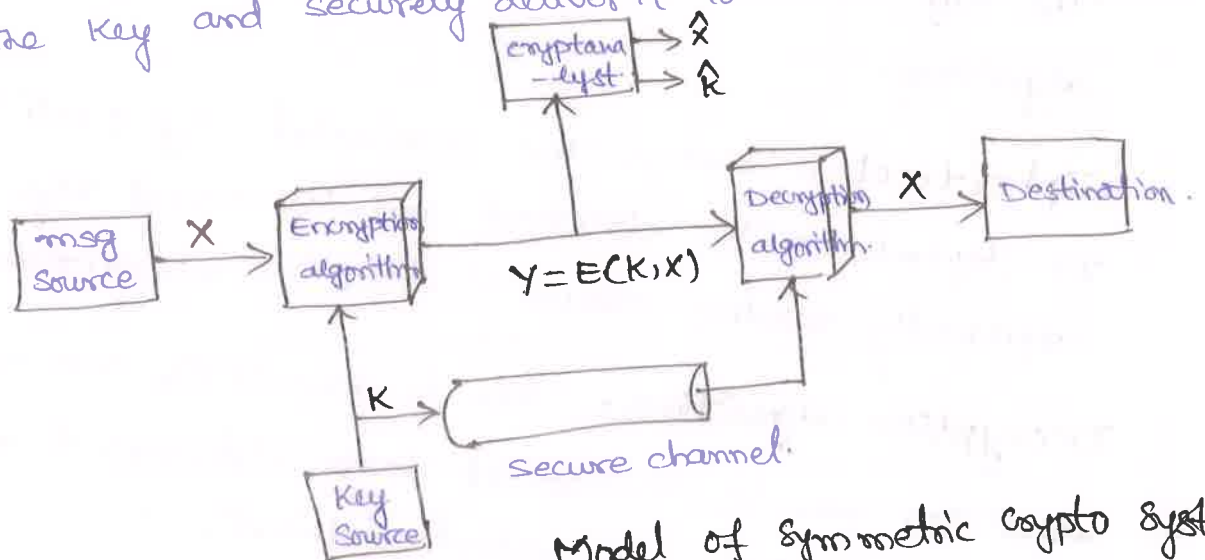 Key and securely deliver it to
cryptana
-lyst.
X̂
K̂
msg
Source
X
Encryption
algorithm
Y=E(K,X)
Decryption
algorithm.
X
Destination.
K
secure channel.
Key
Source
Model of symmetric crypto syst